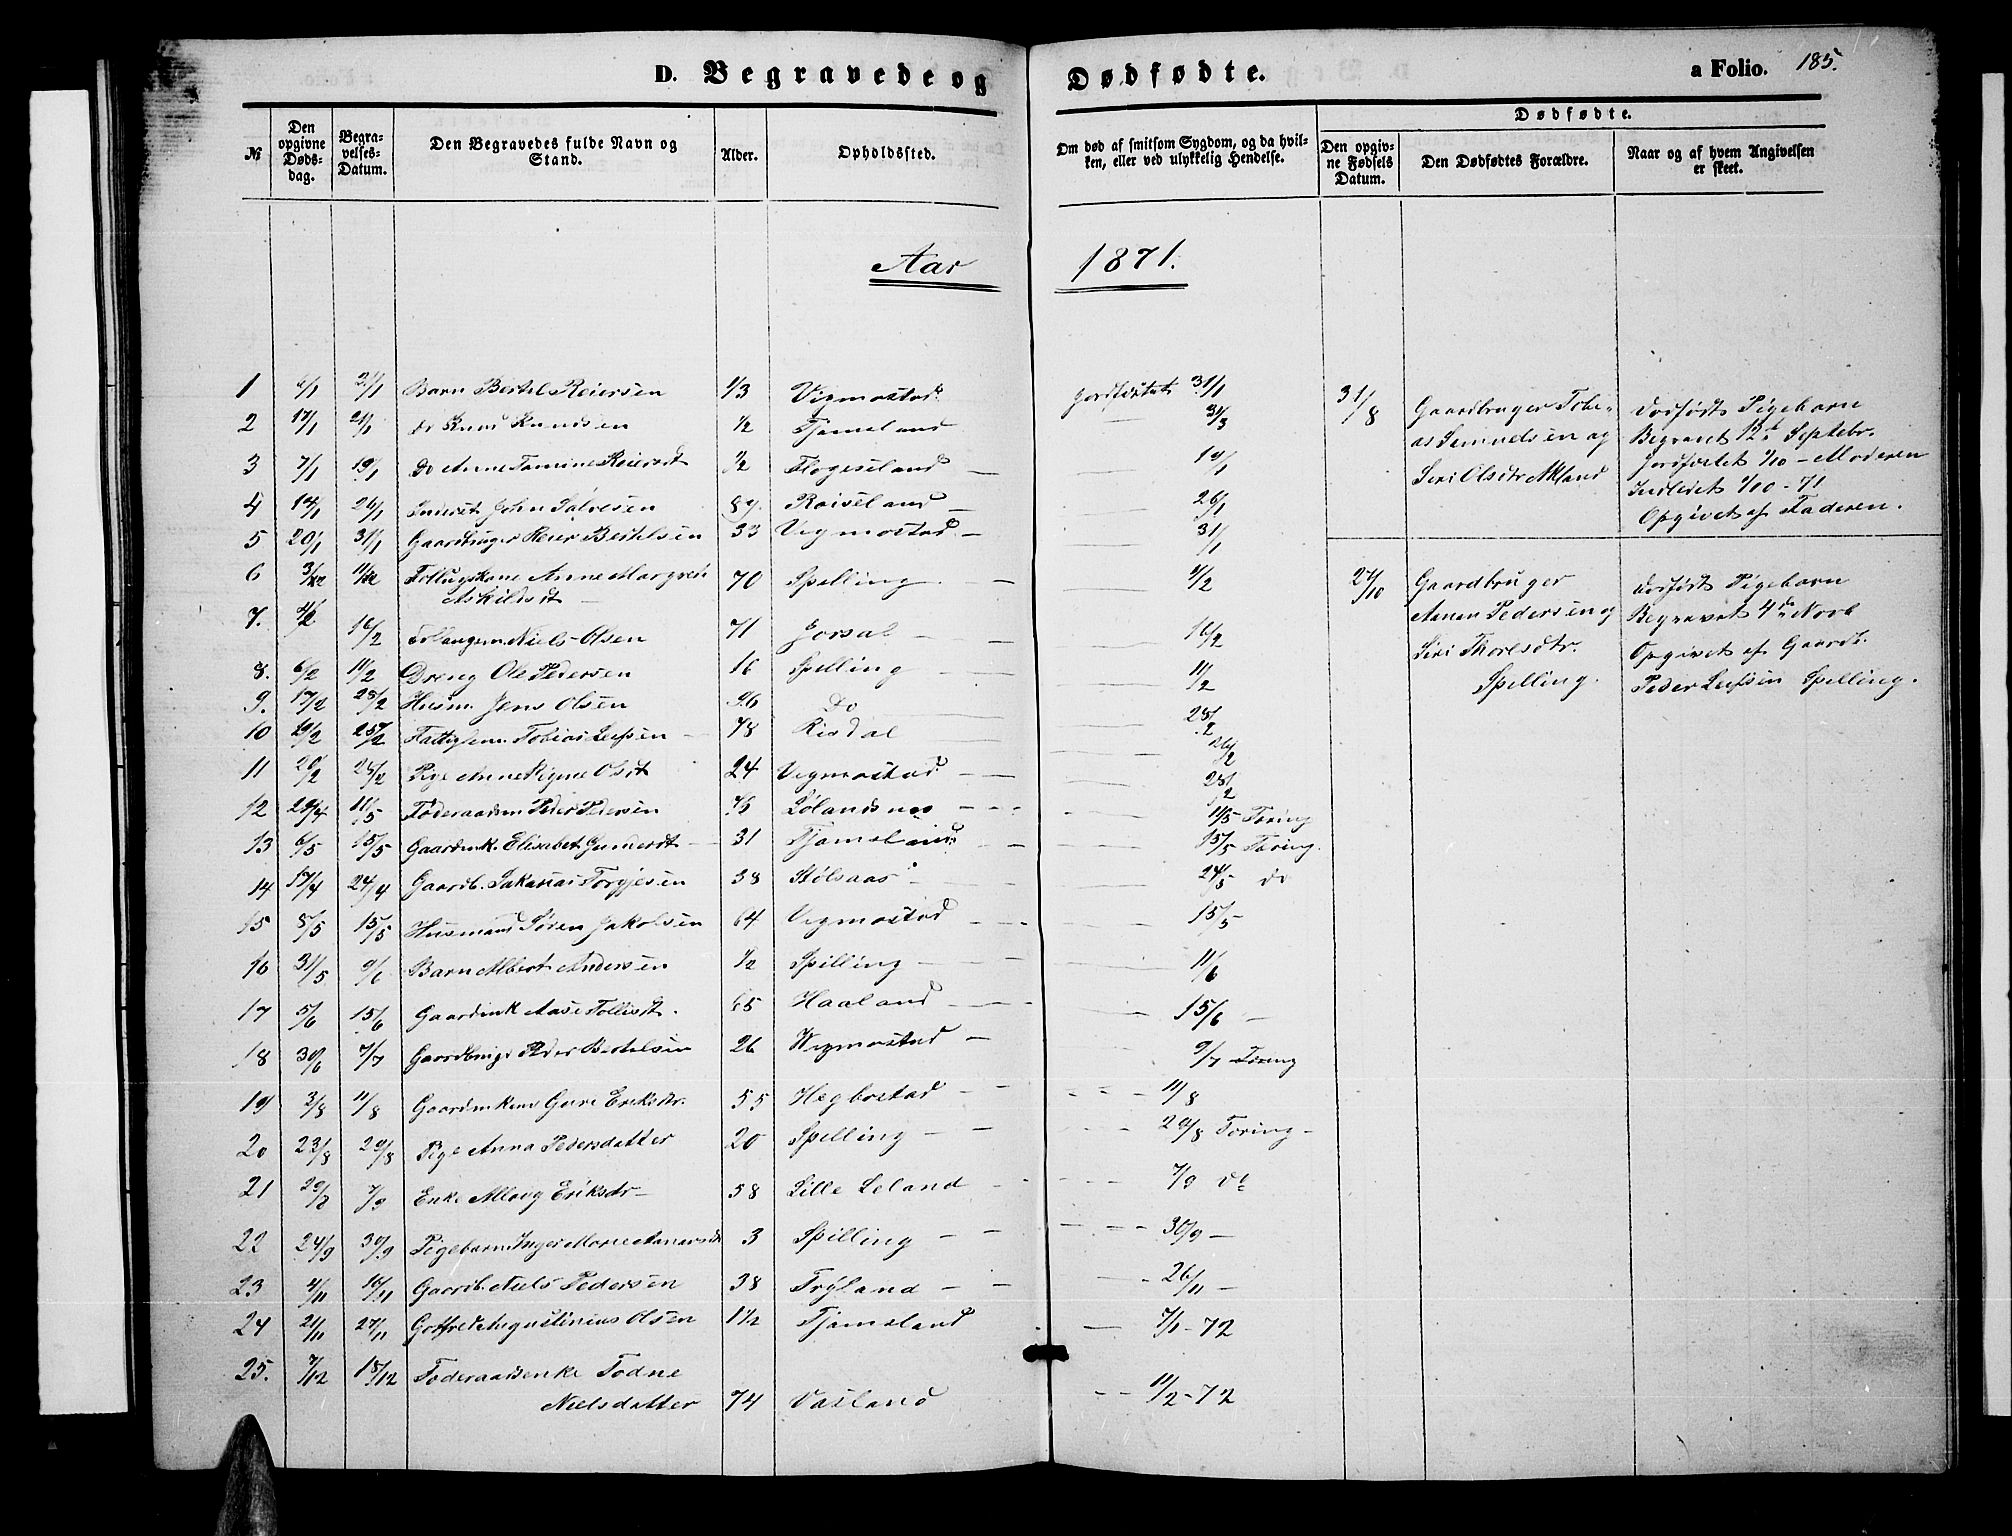 D. Begravede og Dødfødte. a Folio. 185.
№ Den opgivne Dødsdag. Begravelses-Datum. Den Begravedes fulde Navn og Stand. Alder. Opholdssted. Om død af smitsom Sygdom, og da hvilken, eller ved ulykkelig Hendelse.
Dødfødte.
Den opgivne Fødsels Datum. Den Dødfødtes Forældre. Naar og af hvem Angivelsen er skeet.
Aar 1871.
1 6/1 31/1 Barn Bertel Reiersen 1/3 Vigmostad Jordfæstet 31/1
2 17/1 21/1 Do Knud Knudsen 1/2 Tjomsland 31/3
3 7/1 19/1 Do Anne Tomine Reiersdt 1/2 Flogeseland 19/1
4 14/1 26/1 John Salvesen 89. Roiseland 26/1
5 20/1 31/1 Gaardbruger Reier Bertelsen 33 Vegmostad 31/1
6 11/2 Anne Margrete
Askildsdt 70 Spelling 11/2
7. 4/2 16/2 Niels Olsen 71 Jorsal 16/2
8. 6/2 11/2 Dreng Ole Pedersen 16 Spelling 11/2
9. 17/2 28/2 Husm. Jens Olsen 96 Do 28/2
10 19/2 25/2 Fattiglem Tobias Leifsen 78 Risdal
11 20/2 28/2 Pige Anne Signe Olsdt 24 Vegmostad 28/2
12 29/4 11/5 Føderaadm Peder Pedersen Lølandsnes 11/5 Foring
13 6/5 15/5 Gaardmk. Elisabet Gumersdt 31 Tjomsland 15/5 Foring.
14 17/4 24/4 Gaardb. Sakarias Torgjesen 38 Stølsaas 24/5 do
15 8/5 15/5 Husmand Søren Jakobsen 64 Vegmostad 15/5
16 31/5 9/6 Barn Albert Andersen 1/2 Spilling 11/6
17 5/6 15/6 Gaardmk Aase Tollisdt. 65 Haaland 15/6
18 30/6 7/7 Gaardbruger Peder Bertelsen 26 Vegmostad 9/7 Foring
19 3/8 11/8 Gaardmkone Gure Eriksdtr. 55 Hegbostad 11/8
20 23/8 29/8 Pige Anna Pedersdatter 20 Spelling 29/8 Foring
21 29/8 7/9 Enke Allovg Eriksdtr 58 Lille Leland 7/9 do
22 24/9 30/9 Pigebarn Inger Marie Aanensdt 3 Spilling 30/9
23 4/11 16/11 Gaardb. Niels Pedersen 38 Tryland 26/11
24 21/11 27/11 Gotfred Augustinius Olsen 1 1/2 Tjomsland 7/1-72
25. 7/12 18/12 Føderaadsenke Todne
Nielsdatter 74 Vasland 11/2-72
31/8 Gaardbruger Tobe-
as Samuelsen og
Siri Olsdtr Akland
Dødfødt Pigebarn
Begravet 12te Septebr.
Jordfæstet 1/10 - Moderen
Indledet 1/10-71
Opgivet af Faderen.
27/10 Gaardbruger
Aanen Pedersen og
Siri Thoresdtr.
Spelling.
Dødfødt Pigebarn
Begravet 4de Novb
Opgivet af Gaardb.
Peder Leifsen Spelling.